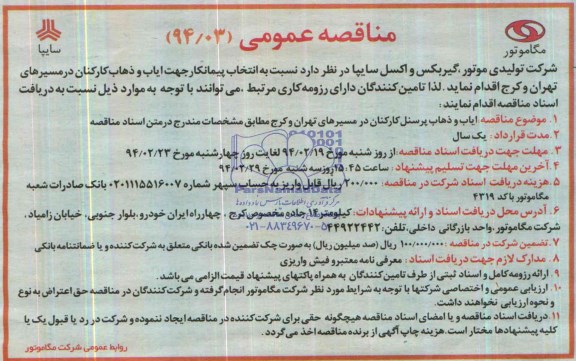 سایپا
مناقصه عمومی (۹۴/۰۳)
مگاموتور
شرکت تولیدی موتور ،گیربکس و اکسل سایپا در نظر دارد نسبت به انتخاب پیمانکار جهت ایاب و ذهاب کارکنان در مسیرهای
تهران و کرج اقدام نماید . لذا تامین کنندگان دارای رزومه کاری مرتبط ، می توانند با توجه به موارد ذیل نسبت به دریافت
اسناد مناقصه اقدام نمایند:
۱. موضوع مناقصه : ایاب و ذهاب پرسنل کارکنان در مسیرهای تهران و کرج مطابق مشخصات مندرج در متن اسناد مناقصه
۲. مدت قرارداد : یک سال
۳. مهلت جهت دریافت اسناد مناقصه: از روز شنبه مورخ ۹۴/۰۲/۱۹ لغایت روز چهارشنبه مورخ ۹۴/۰۲/۲۳
۴. آخرین مهلت جهت تسلیم پیشنهاد : ساعت ۱۵:۴۵ روز سه شنبه مورخ ۹۴/۰۲/۲۹
۵. هزینه دریافت اسناد شرکت در مناقصه: ۲۰۰/۰۰۰ ریال قابل واریز به حساب سپهر شماره ۰۲۰۱۱۱۵۵۱۶۰۰۷ بانک صادرات شعبه
مگاموتور با کد ۴۳۱۹
۶. آدرس محل دریافت اسناد و ارائه پیشنهادات: کیلومتر ۱۴ جاده مخصوص کرج ، چهارراه ایران خودرو ،بلوار جنوبی، خیابان زامیاد،
شرکت مگاموتور .واحد بازرگانی داخلی، تلفن: ۵۴۴۹۲۲۴۴۲
۷. تضمین شرکت در مناقصه : ۱۰۰/۰۰۰/۰۰۰ ریال (صد میلیون ریال) به صورت چک تضمین شده بانکی متعلق به شرکت کننده و یا ضمانتنامه بانکی
۸. مدارک لازم جهت دریافت اسناد: معرفی نامه معتبر و فیش واریزی
۹. ارائه رزومه کامل و اسناد ثبتی از طرف تامین کنندگان به همراه پاکتهای پیشنهاد قیمت الزامی می باشد.
۱۰. ارزیابی عمومی و اختصاصی شرکتها با توجه به شرایط مورد نظر شرکت مگاموتور انجام گرفته و شرکت کنندگان در مناقصه حق اعتراض به نوع
و نحوه ارزیابی نخواهند داشت.
۱۱. دریافت اسناد مناقصه و یا امضای اسناد مناقصه هیچگونه حقی برای شرکت کننده در مناقصه ایجاد ننموده و شرکت در رد یا قبول یک یا
کلیه پیشنهادها مختار است. هزینه چاپ آگهی از برنده مناقصه اخذ می گردد.
روابط عمومی شرکت مگاموتور
ParsNamadData
۰۲۱-۸۸۳۴۹۶۷۰